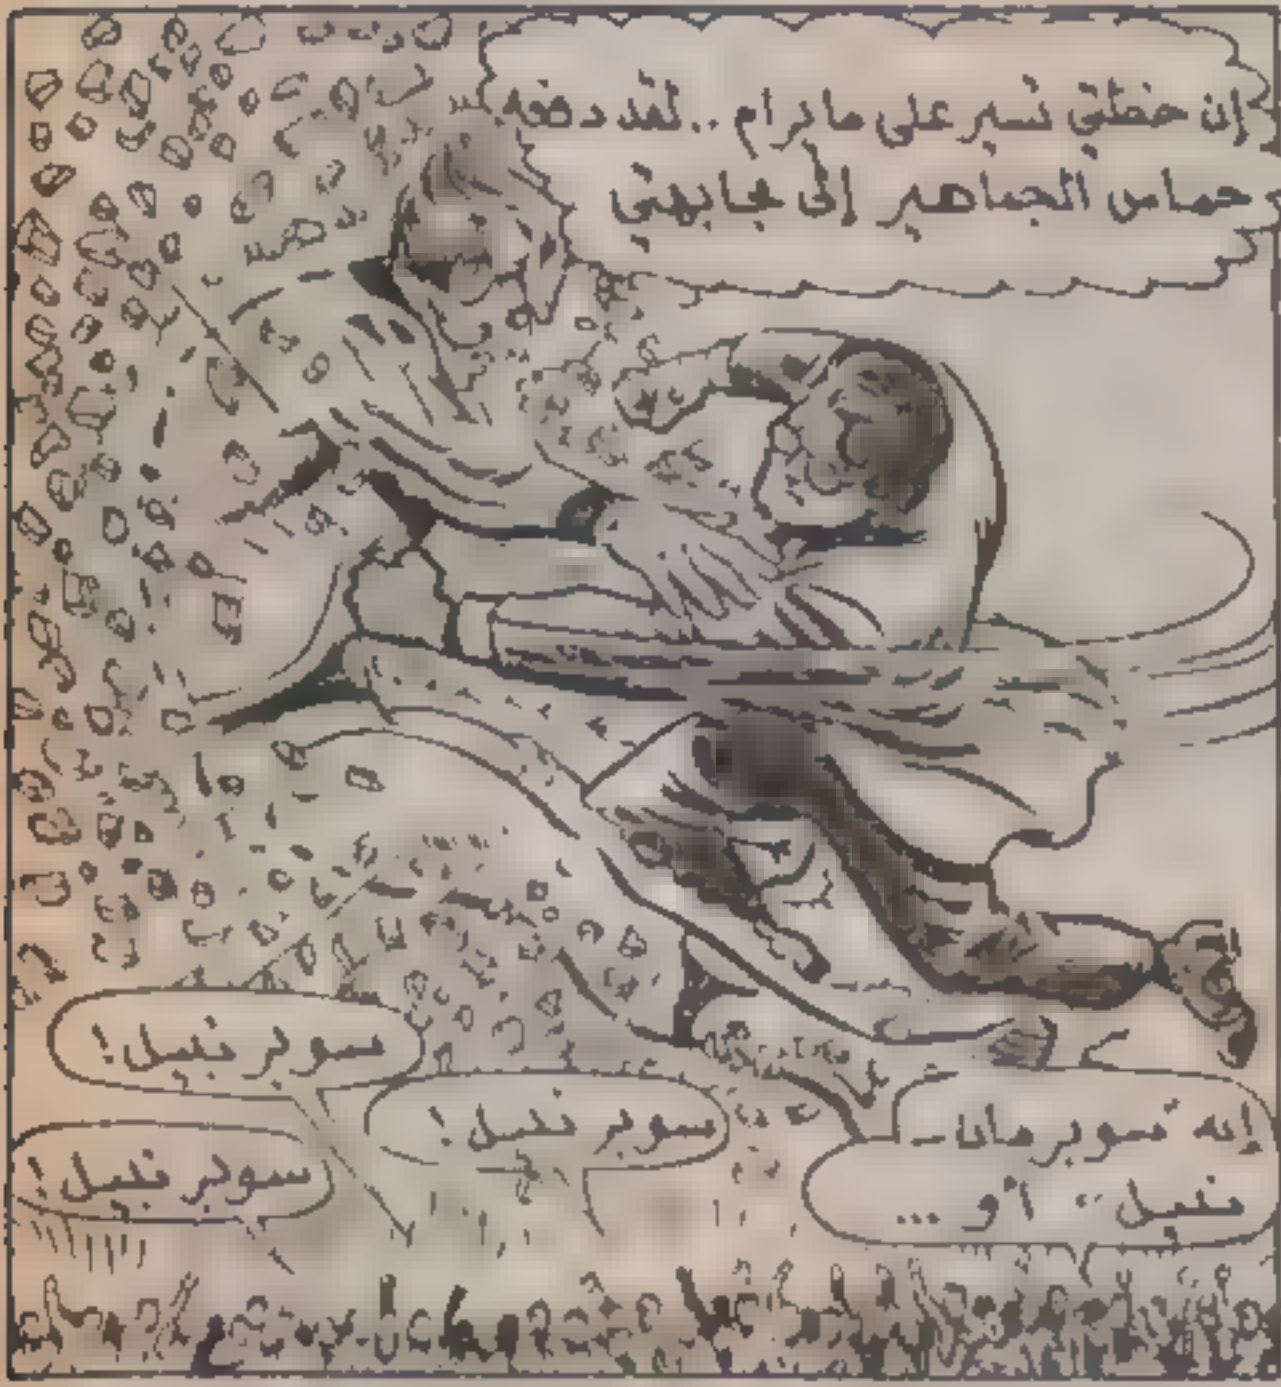 إن خطتي تسير على ما يرام .. لقد دفعه
حماس الجماهير إلى مجابهتي
سوبر نبيل!
سوبر نبيل!
سوبر نبيل!
إنه سوبر مان ــ
نبيل .. أو ...